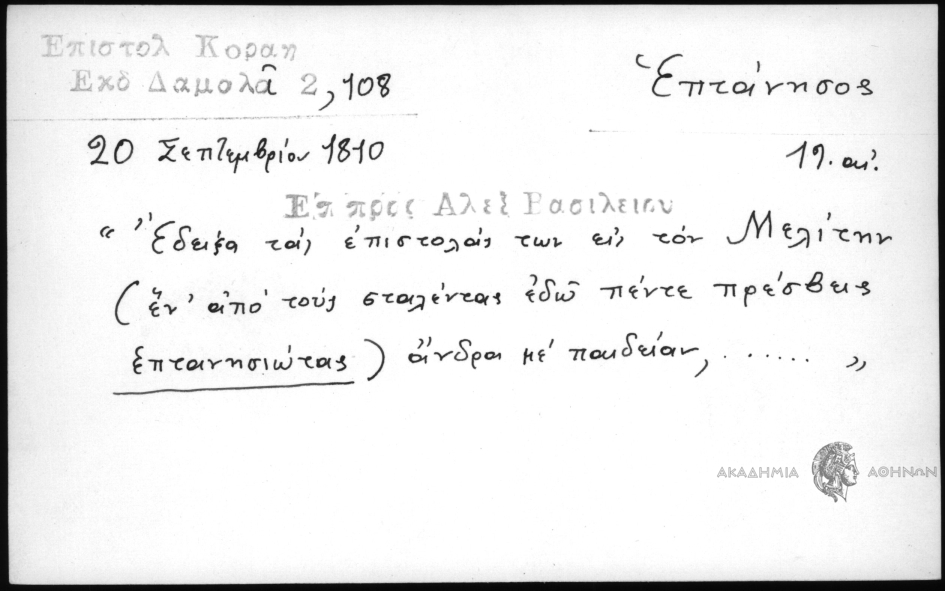 Επιστολ Κοραη
Εκδ Δαμαλᾶ 2, 108
Ἑπτάνησος
20 Σεπτεμβρίου 1810
19. αἰ.
Επ προς Αλεξ Βασιλειου
“ Ἔδειξα τάς ἐπιστολάς των εἰς τόν Μελίτην
(ἕν' ἀπό τούς σταλέντας ἐδῶ πέντε πρέσβεις
ἑπτανησιώτας) ἄνδρα μέ παιδείαν, ...... „
ΑΚΑΔΗΜΙΑ ΑΘΗΝΩΝ